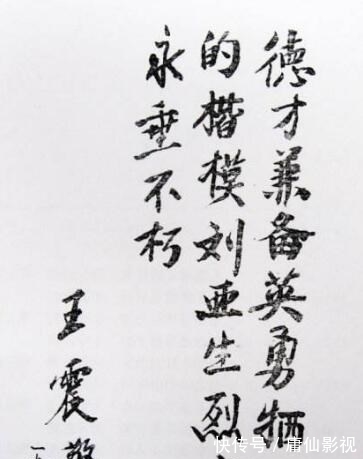 德才兼备英勇牺
的楷模刘亚生烈
永垂不朽
王震敬
快传号/庸仙影视